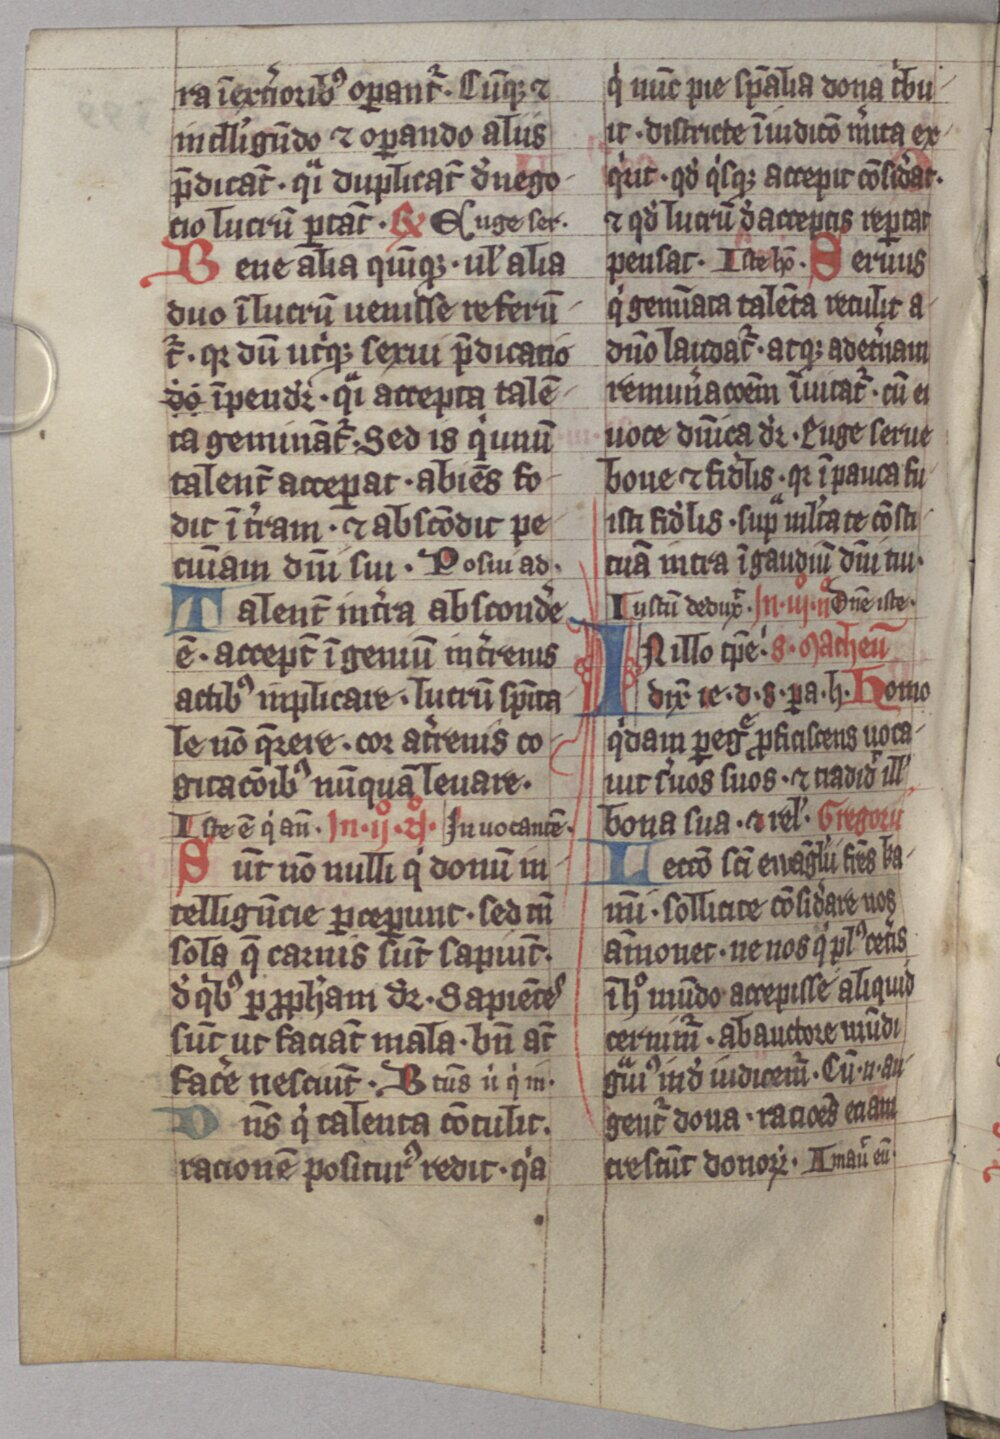 ra ı̄ ext̾iorib⁹ oꝑant᷑. Cūq; ⁊
intelligēdo ⁊ oꝑando aliis
p̄dicat̄. qͣi duplicat̄ d̾ nego
tio lucrū portāt. ꝶ Euge ser.
Bene alia quīq;. ul̾ alia
duo ı̄ lucrū uenisse referū
t᷑. qꝛ dū utͥq; sexui p̄dicatio
do ı̄pendit᷑. qͣi accepta talē
ta gemināt᷑. Sed is qͥ unū
talent̄ acceꝑat. abiēs fo
dit ı̄ t̾ram. ⁊ abscōdit pe
cuniam dn̄i sui. Posui ad.
Talent̄ in t̾ra abscond̾e
ē. accept̄ ı̄geniū in t̾renis
actib⁹ inplicare. lucrū sp̄ita
le nō q̄rere. cor a t̾renis co
gitacōib⁹ nūquā leuare.
Iste ē qͥ an̄. In. ij. n̊. Inuocantē.
Sūt nō nulli qͥ donum in
telligēcie ꝑceꝑunt. sed tn̄
sola q̄ carnis sūt sapiūt.
d̾ qͥb⁹ ꝑ ꝓph̄am dr̄. Sapiētes
sūt ut faciāt mala. bn̄ at̄
fac̾e nesciūt. Btūs ū qͥ in.
Dn̄s qͥ talenta cōtulit.
rationē positur⁹ redit. qͥa
qͥ nūc pie sp̄alia dona tͥbu
it. districte ı̄ iudicō m̾ita ex
qͥrit. qd̾ qͥsq; accepit cōsid̾at.
⁊ qd̾ lucrū d̾ acceptis reportat
pensat. Iste hō. Seruus
qͥ gemīata talēta retulit a
dn̄o laudat᷑. atq; ad et̾nam
remun̾acoēm ı̄uitat᷑. cū ei
uoce dn̄ica dr̄. Euge serue
bone ⁊ fid̾lis. qꝛ ı̄ pauca fu
isti fid̾lis. supͣ ml̾ta te cōsti
tuā intra ı̄ gaudiū dn̄i tui.
Iustū deduxͭ. In. iij. n̊ Dn̄e iste.
IN illo tp̄e. s. Matheū
dix̄ ie. d. s. ꝑa. h. Homo
qͥdam ꝑegͤ ꝓficiscens uoca
uit s̾uos suos. ⁊ tradid̾ ill̾
bona sua. ⁊ rel̾. Gregorii
Lectō sc̄i ewāg̾lii fr̄es ka
mi. sollicite cōsid̾are nos
am̄onet. ne nos qͥ pl⁹ cet̾is
ı̄ h° mūdo accepisse aliquid
cernimͬ. ab auctore mūdi
gͣui⁹ inď iudicem̄. Cū. n. au
gent᷑ dona. racioēs etiam
crescūt donoꝝ. Amau̾ eū.